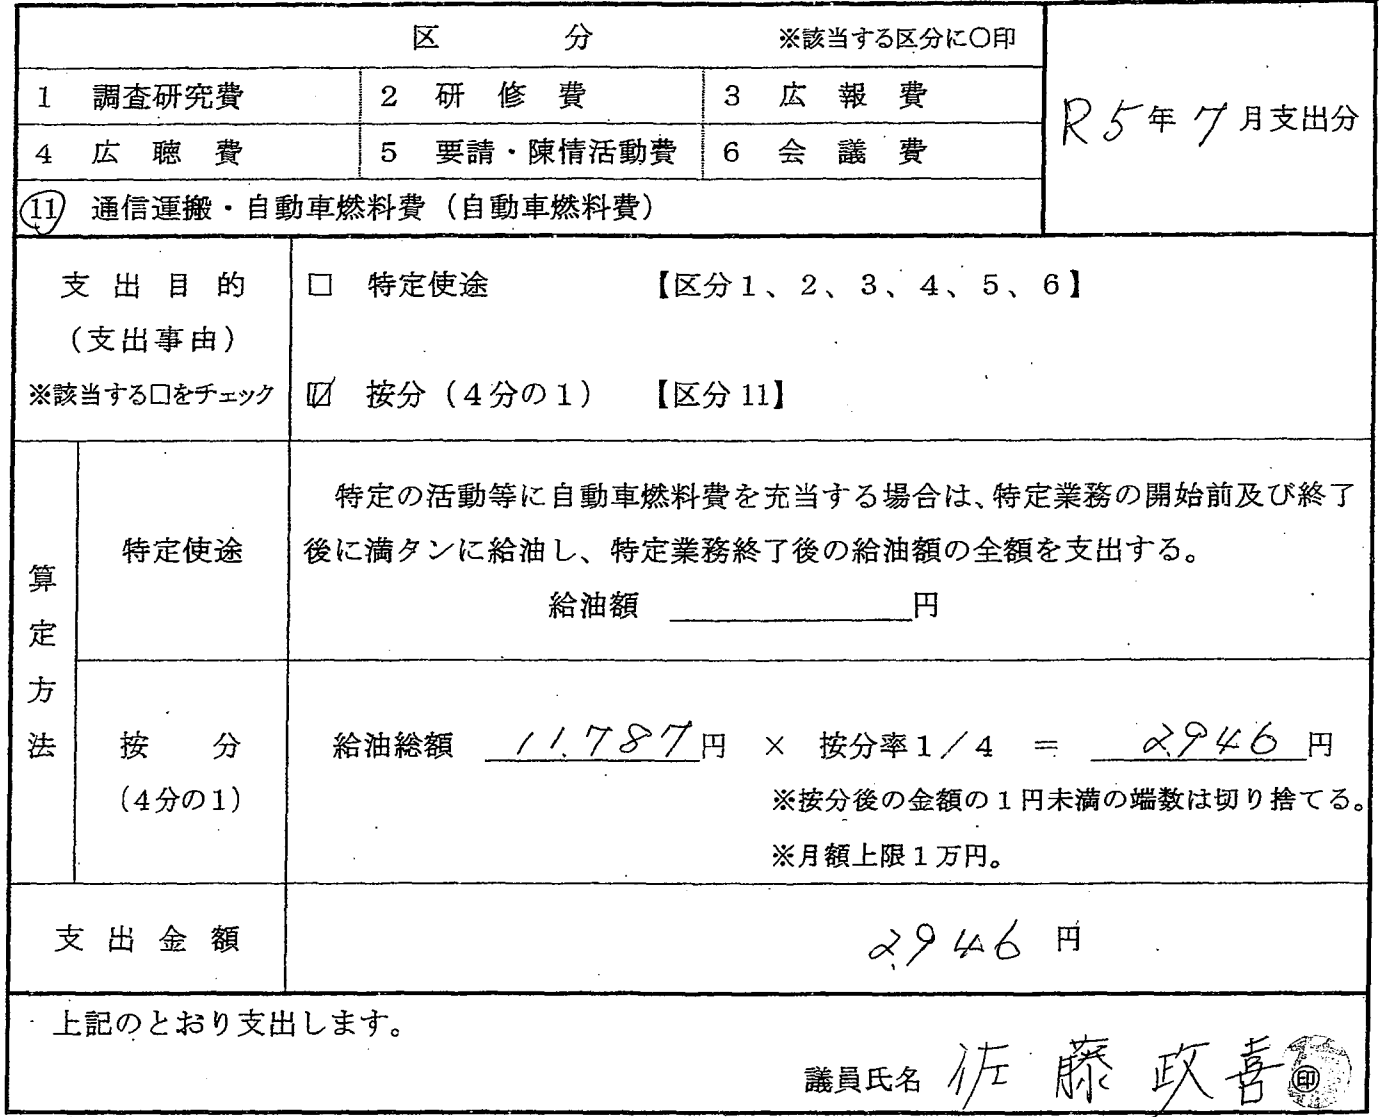 区　分　※該当する区分に〇印
1 調査研究費　2 研修費　3 広報費
R5年7月支出分
4 広聴費　5 要請・陳情活動費　6 会議費
⑪ 通信運搬・自動車燃料費（自動車燃料費）
支出目的
（支出事由）
※該当する□をチェック
□ 特定使途　【区分1、2、3、4、5、6】
☑ 按分（4分の1）　【区分11】
算定方法
特定使途
特定の活動等に自動車燃料費を充当する場合は、特定業務の開始前及び終了
後に満タンに給油し、特定業務終了後の給油額の全額を支出する。
給油額　　　　円
按　分
（4分の1）
給油総額 11,787円 × 按分率1／4 ＝ 2,946円
※按分後の金額の1円未満の端数は切り捨てる。
※月額上限1万円。
支出金額　2,946円
上記のとおり支出します。
議員氏名 佐藤政喜 ㊞